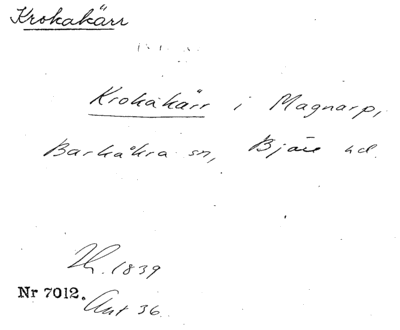 Krokakärr
Krokakärr i Magnarp,
Barkåkra sn, Bjäre hd.
1839
Nr 7012.
36.